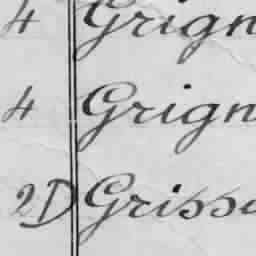 4 Grign
4 Grign
2D Griss